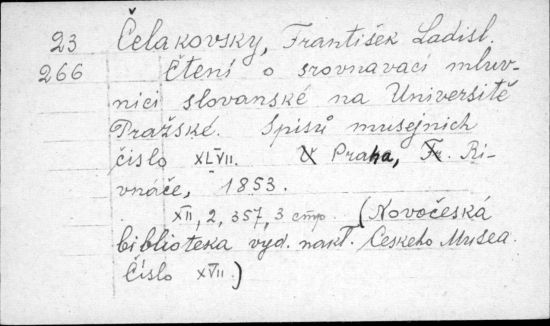 23 Čelakovsky, František Ladisl.
266 Čtení o srovnavaci mluv-
nici slovanské na Universitě
Pražské. Spisů musejnich
čislo XLVII. V Praha, Fr. Ri-
vnáče, 1853.
XII, 2, 357, 3 стр. (Novočeská
biblioteka vyd. nakl. Ceskeho Musea.
Čislo XVII.)